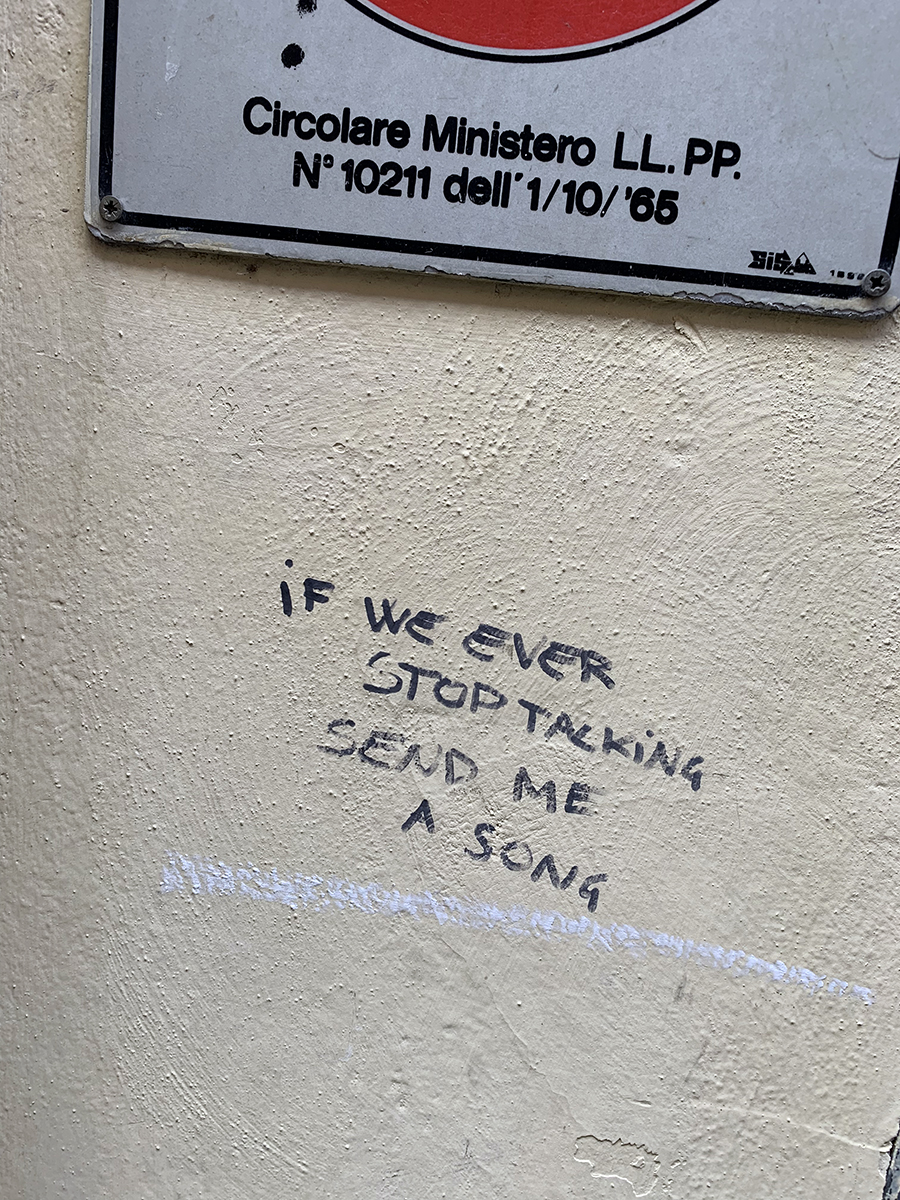 Circolare Ministero LL. PP.
N° 10211 dell' 1/10/'65
SISAM
iF WE EVER
STOP TALKiNG
SEND ME
A SONG